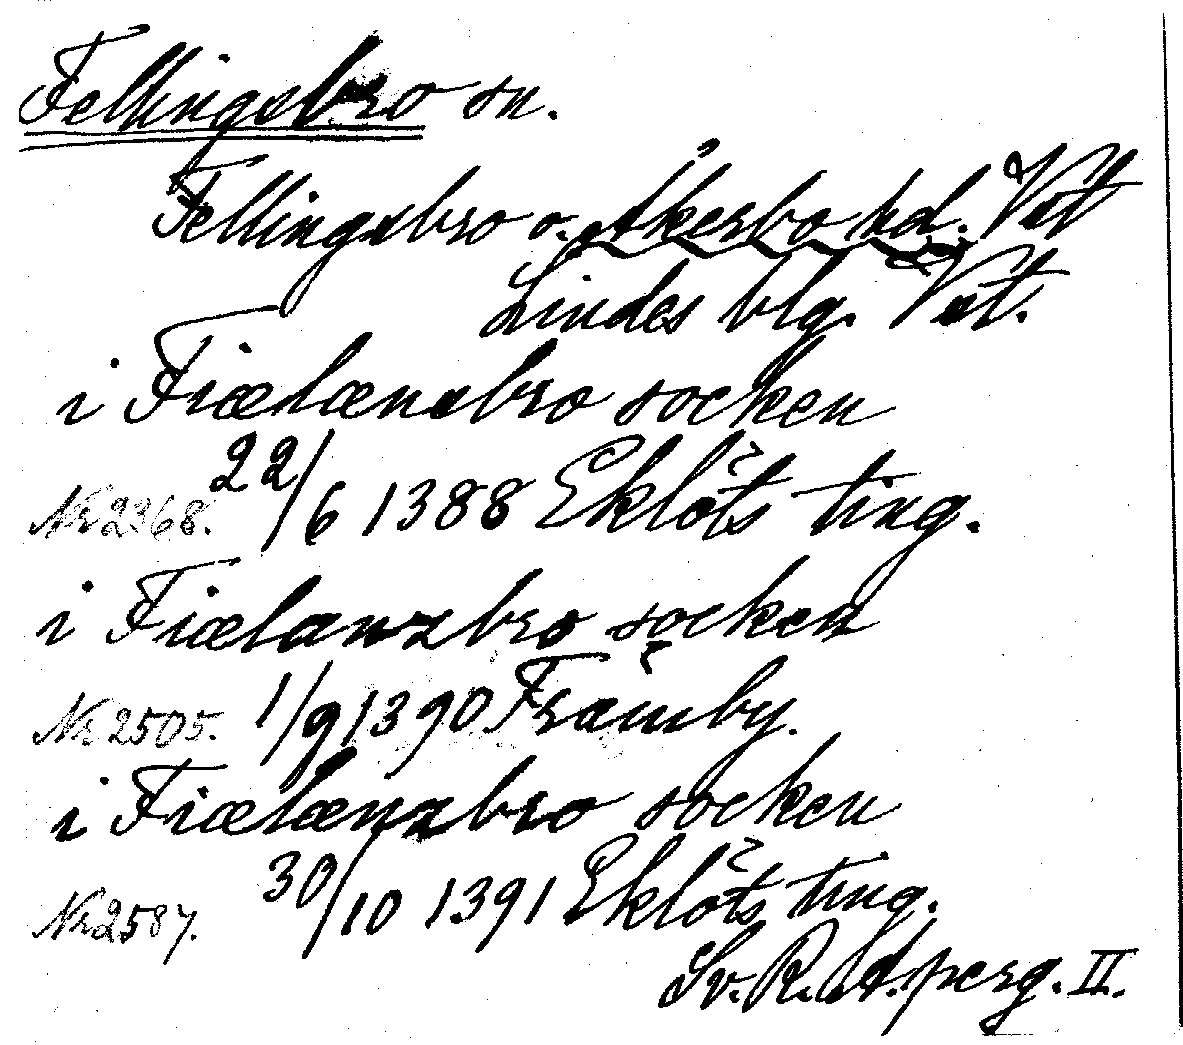 Fellingsbro sn.
Fellingsbro o. Åkerbo hd. Vst
Lindes blg. Vst.
i Fiælænsbro socken
Nr 2368. 22/6 1388 Eklöts ting.
i Fiælanzbro socken
Nr 2505. 1/9 1390 Främby.
i Fiælænzbro socken
Nr 2587. 30/10 1391 Eklöts ting.
Sv. R. A. perg. II.